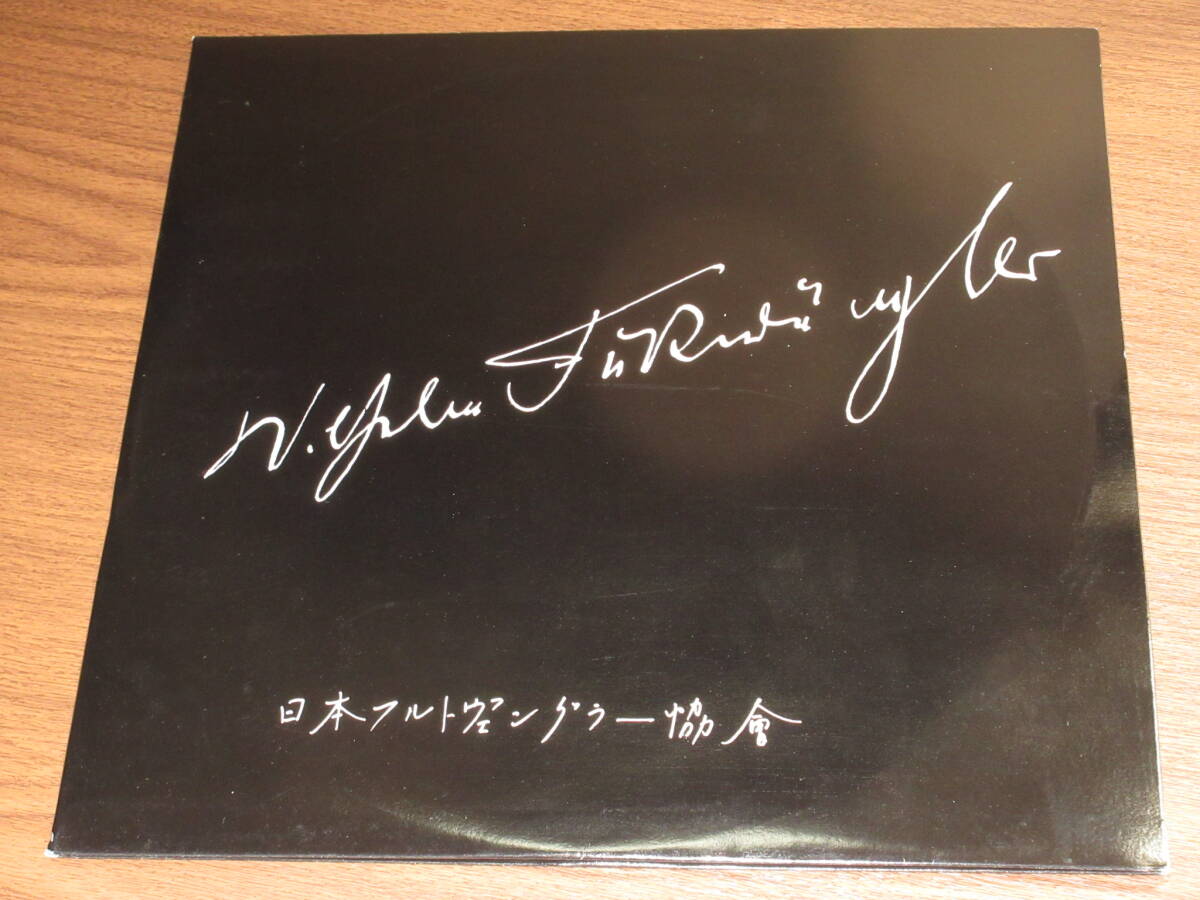 Wilhelm Furtwängler
日本フルトヴェングラー協會